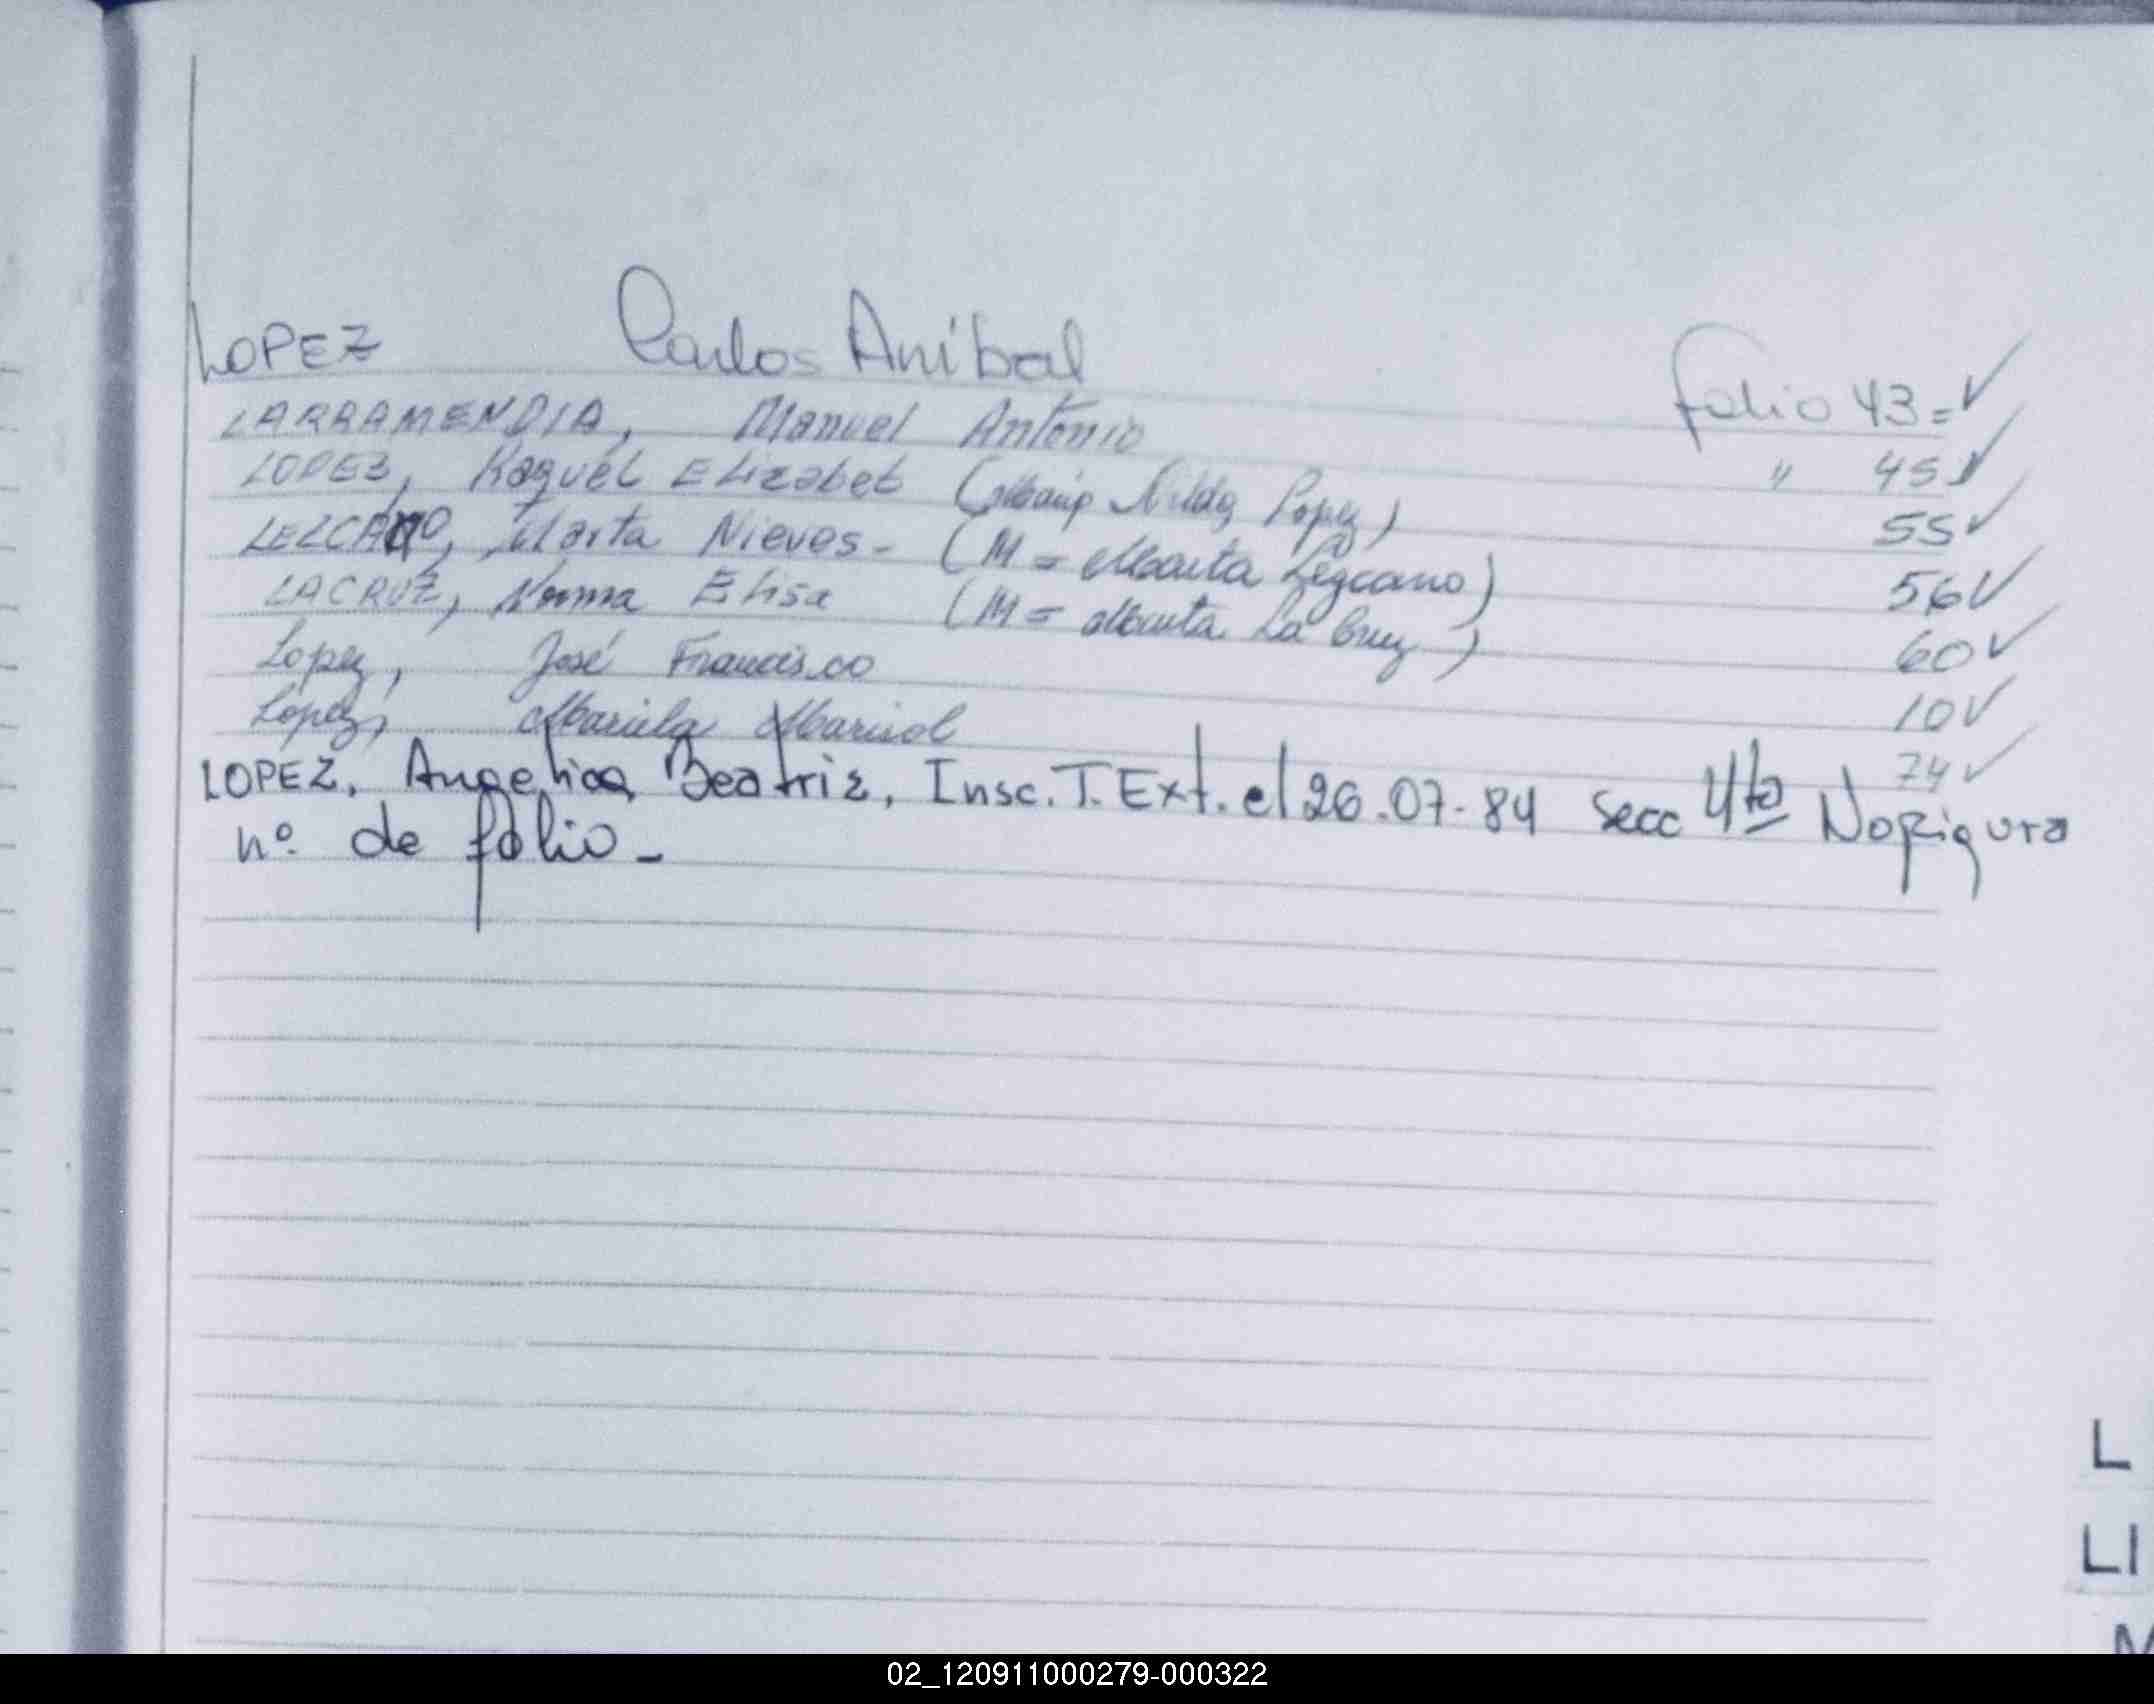 LOPEZ Carlos Aníbal folio 43=✓
LARRAMENDIA, Manuel Antonio " 45✓
LOPEZ, Raquél Elizabet ( Nilda Lopez) 55✓
LEZCANO, Marta Nieves - (M = Marta Lezcano) 56✓
LACRUZ, Norma Elisa (M = Marta La Cruz) 60✓
Lopez, José Francisco 10✓
Lopez, Mariela Marisol 74✓
LOPEZ, Angelica Beatriz, Insc. T. Ext. el 26.07-84 Secc 4ta No figura
nº de folio -
L
LI
M
02_120911000279-000322